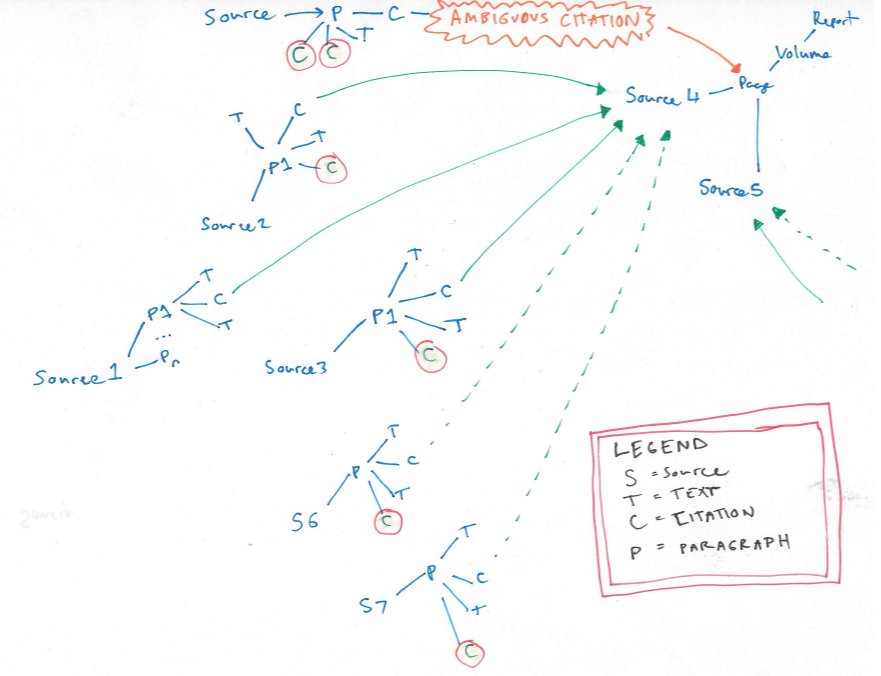 Source P C AMBIGUOUS CITATION
C C T
Report
Volume
Page
Source 4
T C
T
P1 C
Source 2
Source 5
T
P1 C
T
...
Source 1 Pn
T
C
P1 T
C
Source 3
T
P C
T
C
S6
T
P C
T
C
S7
LEGEND
S = Source
T = TEXT
C = CITATION
P = PARAGRAPH